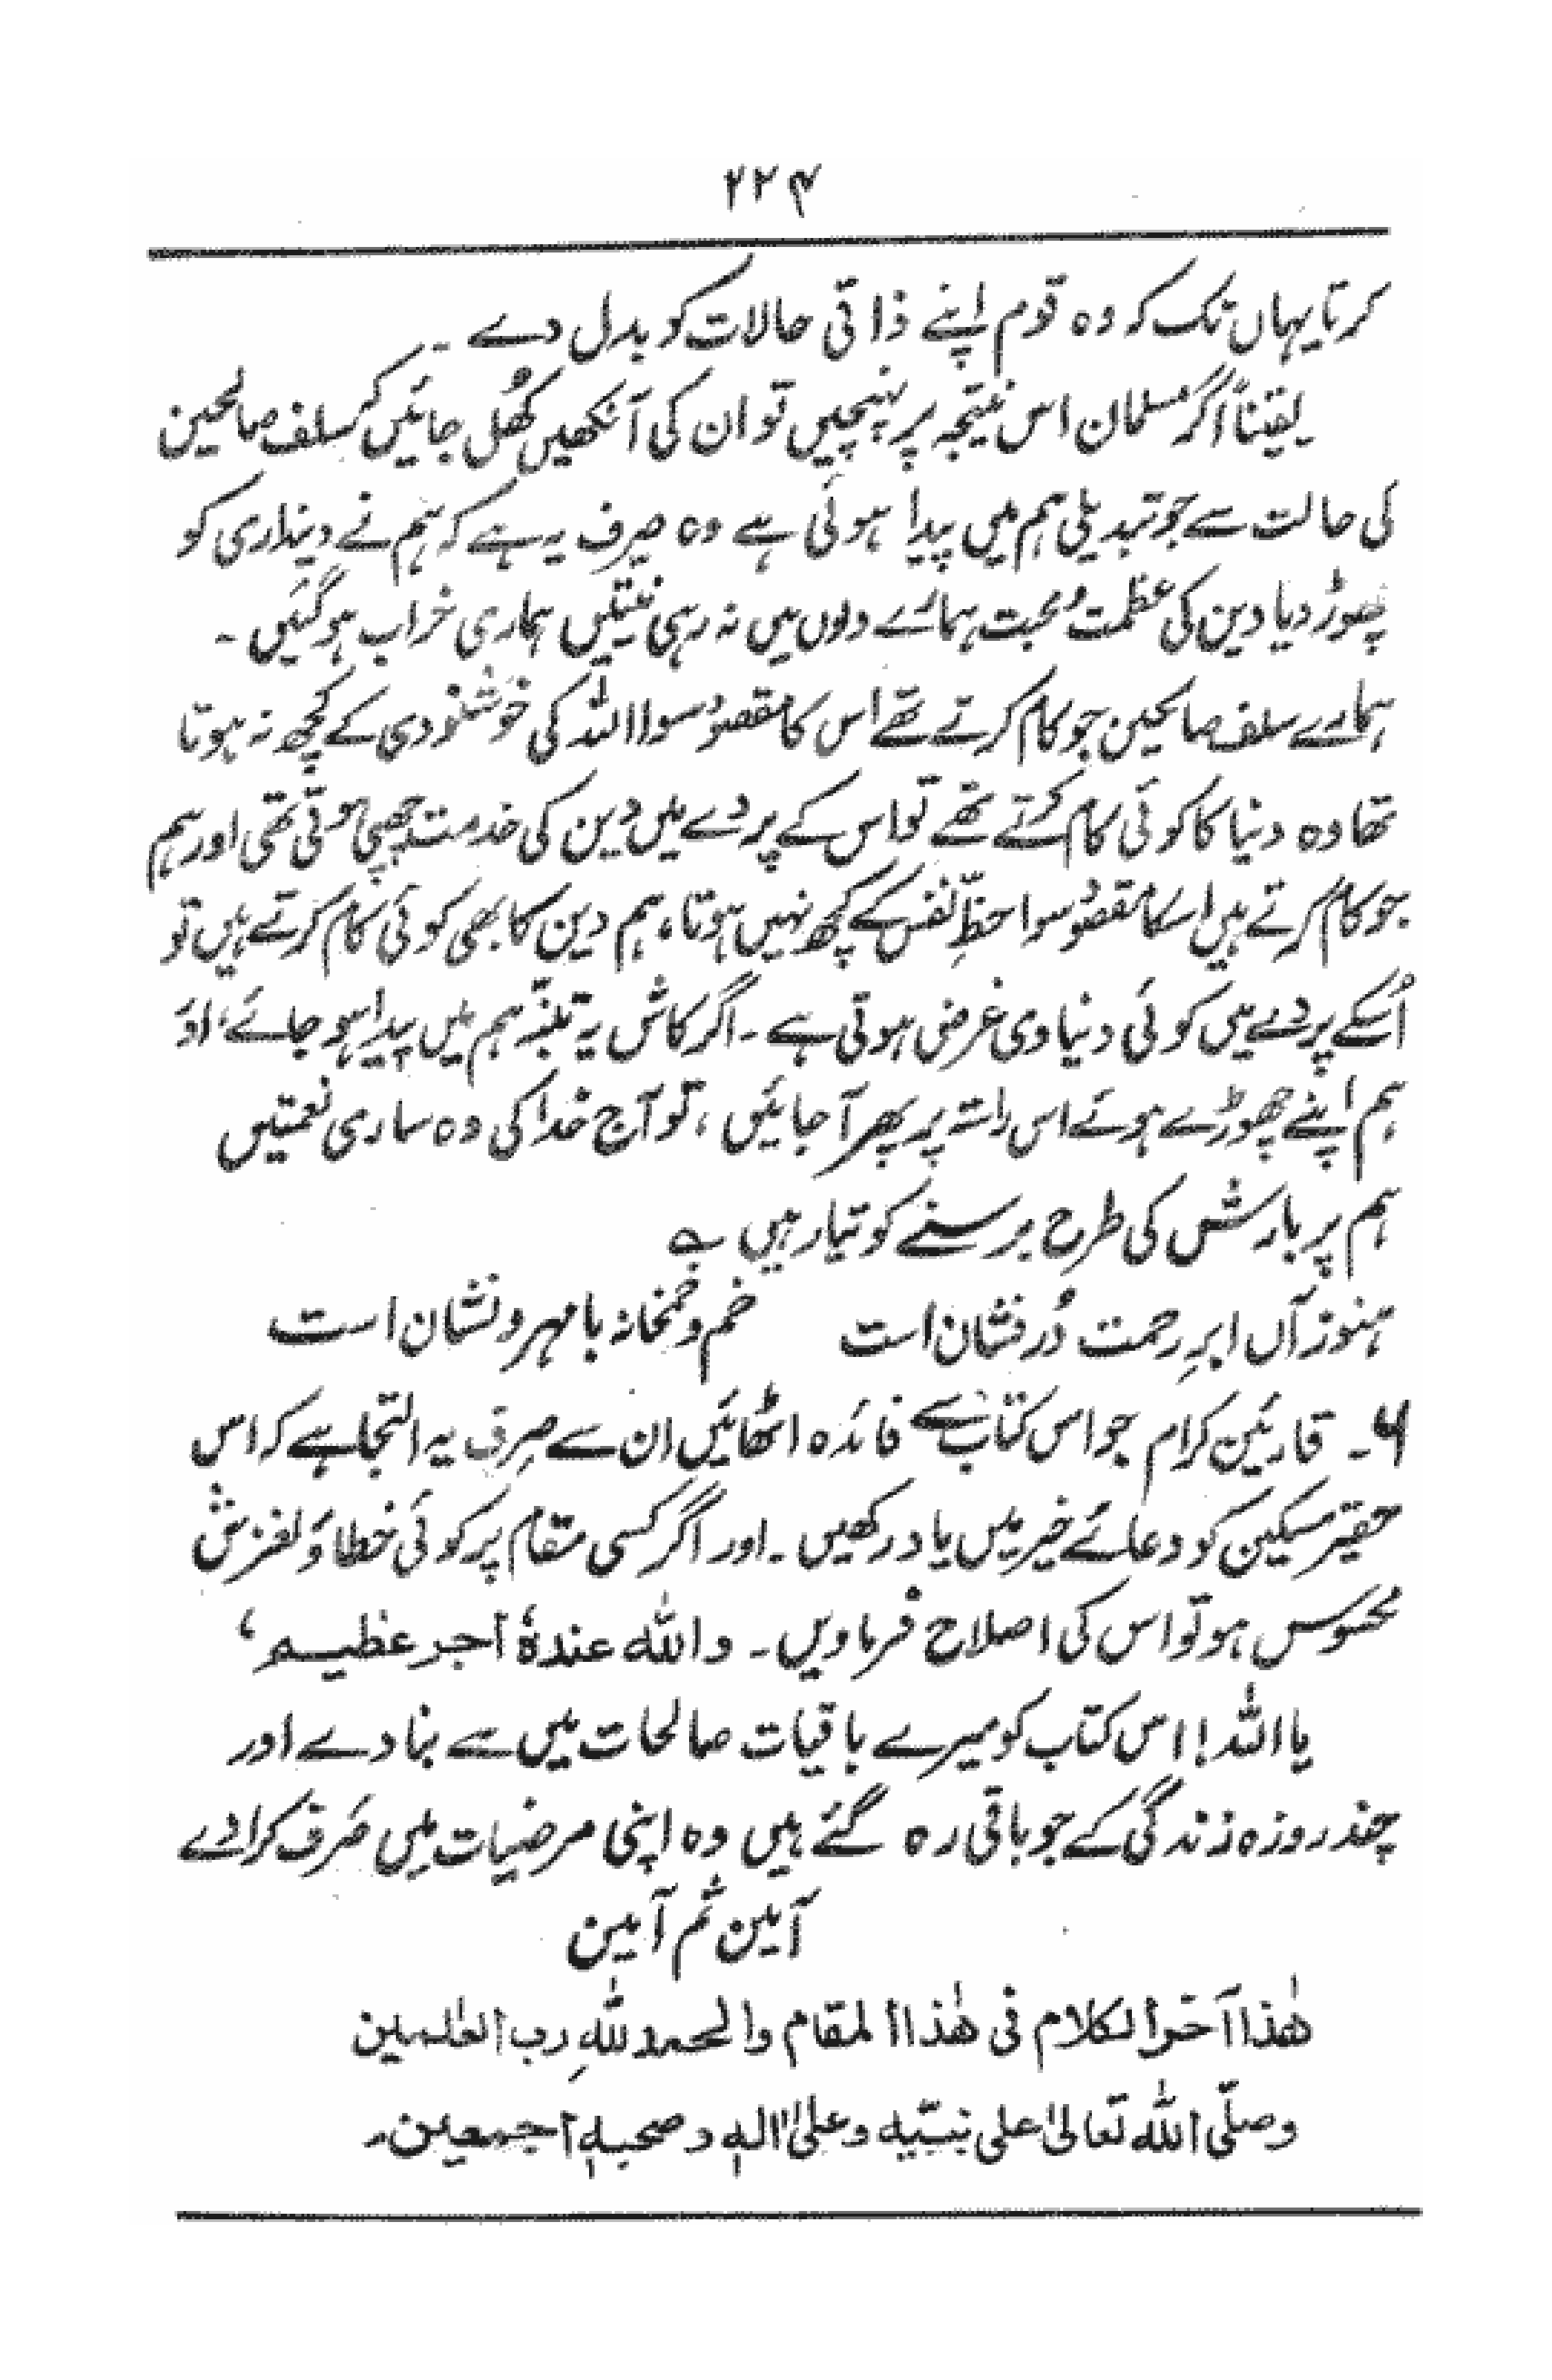 ۲۲۴
کرتا یہاں تک کہ وہ قوم اپنے ذاتی حالات کو بدل دے ۔
یقیناً اگر مسلمان اس نتیجہ پر پہنچیں تو ان کی آنکھیں کھُل جائیں کہ سلف صالحین
کی حالت سے جو تبدیلی ہم میں پیدا ہوئی ہے وہ صرف یہ ہے کہ ہم نے دینداری کو
چھوڑ دیا دین کی عظمت و محبت ہمارے دلوں میں نہ رہی نیتیں ہماری خراب ہو گئیں ۔
ہمارے سلف صالحین جو کام کرتے تھے اس کا مقصود سوا اللہ کی خوشنودی کے کچھ نہ ہوتا
تھا وہ دنیا کا کوئی کام کرتے تھے تو اس کے پردے میں دین کی خدمت چھپی ہوتی تھی اور ہم
جو کام کرتے ہیں اسکا مقصود سوا حظِّ نفس کے کچھ نہیں ہوتا، ہم دین کا بھی کوئی کام کرتے ہیں تو
اُسکے پردے میں کوئی دنیاوی غرض ہوتی ہے ۔ اگر کاش یہ تنبّہ ہم میں پیدا ہو جائے، اور
ہم اپنے چھوڑے ہوئے اس راستہ پر پھر آ جائیں ، تو آج خدا کی وہ ساری نعمتیں
ہم پر بارش کی طرح برسنے کو تیار ہیں ؎
ہنوز آں ابرِ رحمت دُر فشان است خم و خمخانہ با مہر و نشان است
۶۔ قارئین کرام جو اس کتاب سے فائدہ اٹھائیں ان سے صرف یہ التجا ہے کہ اس
حقیر مسکین کو دعائے خیر میں یاد رکھیں ۔ اور اگر کسی مقام پر کوئی خطا و لغزش
محسوس ہو تو اس کی اصلاح فرما دیں ۔ واللہ عندہٗ اجر عظیم ،
یا اللہ ! اس کتاب کو میرے باقیات صالحات میں سے بنا دے اور
چند روزہ زندگی کے جو باقی رہ گئے ہیں وہ اپنی مرضیات میں صَرف کرا دے
آمین ثم آمین
ھٰذا آخر الکلام فی ھٰذا المقام والحمد للّٰہِ رب العٰلمین
وصلّی اللّٰہ تعالیٰ علی نبیّہ وعلیٰ اٰلہٖ وصحبہٖ اجمعین۔